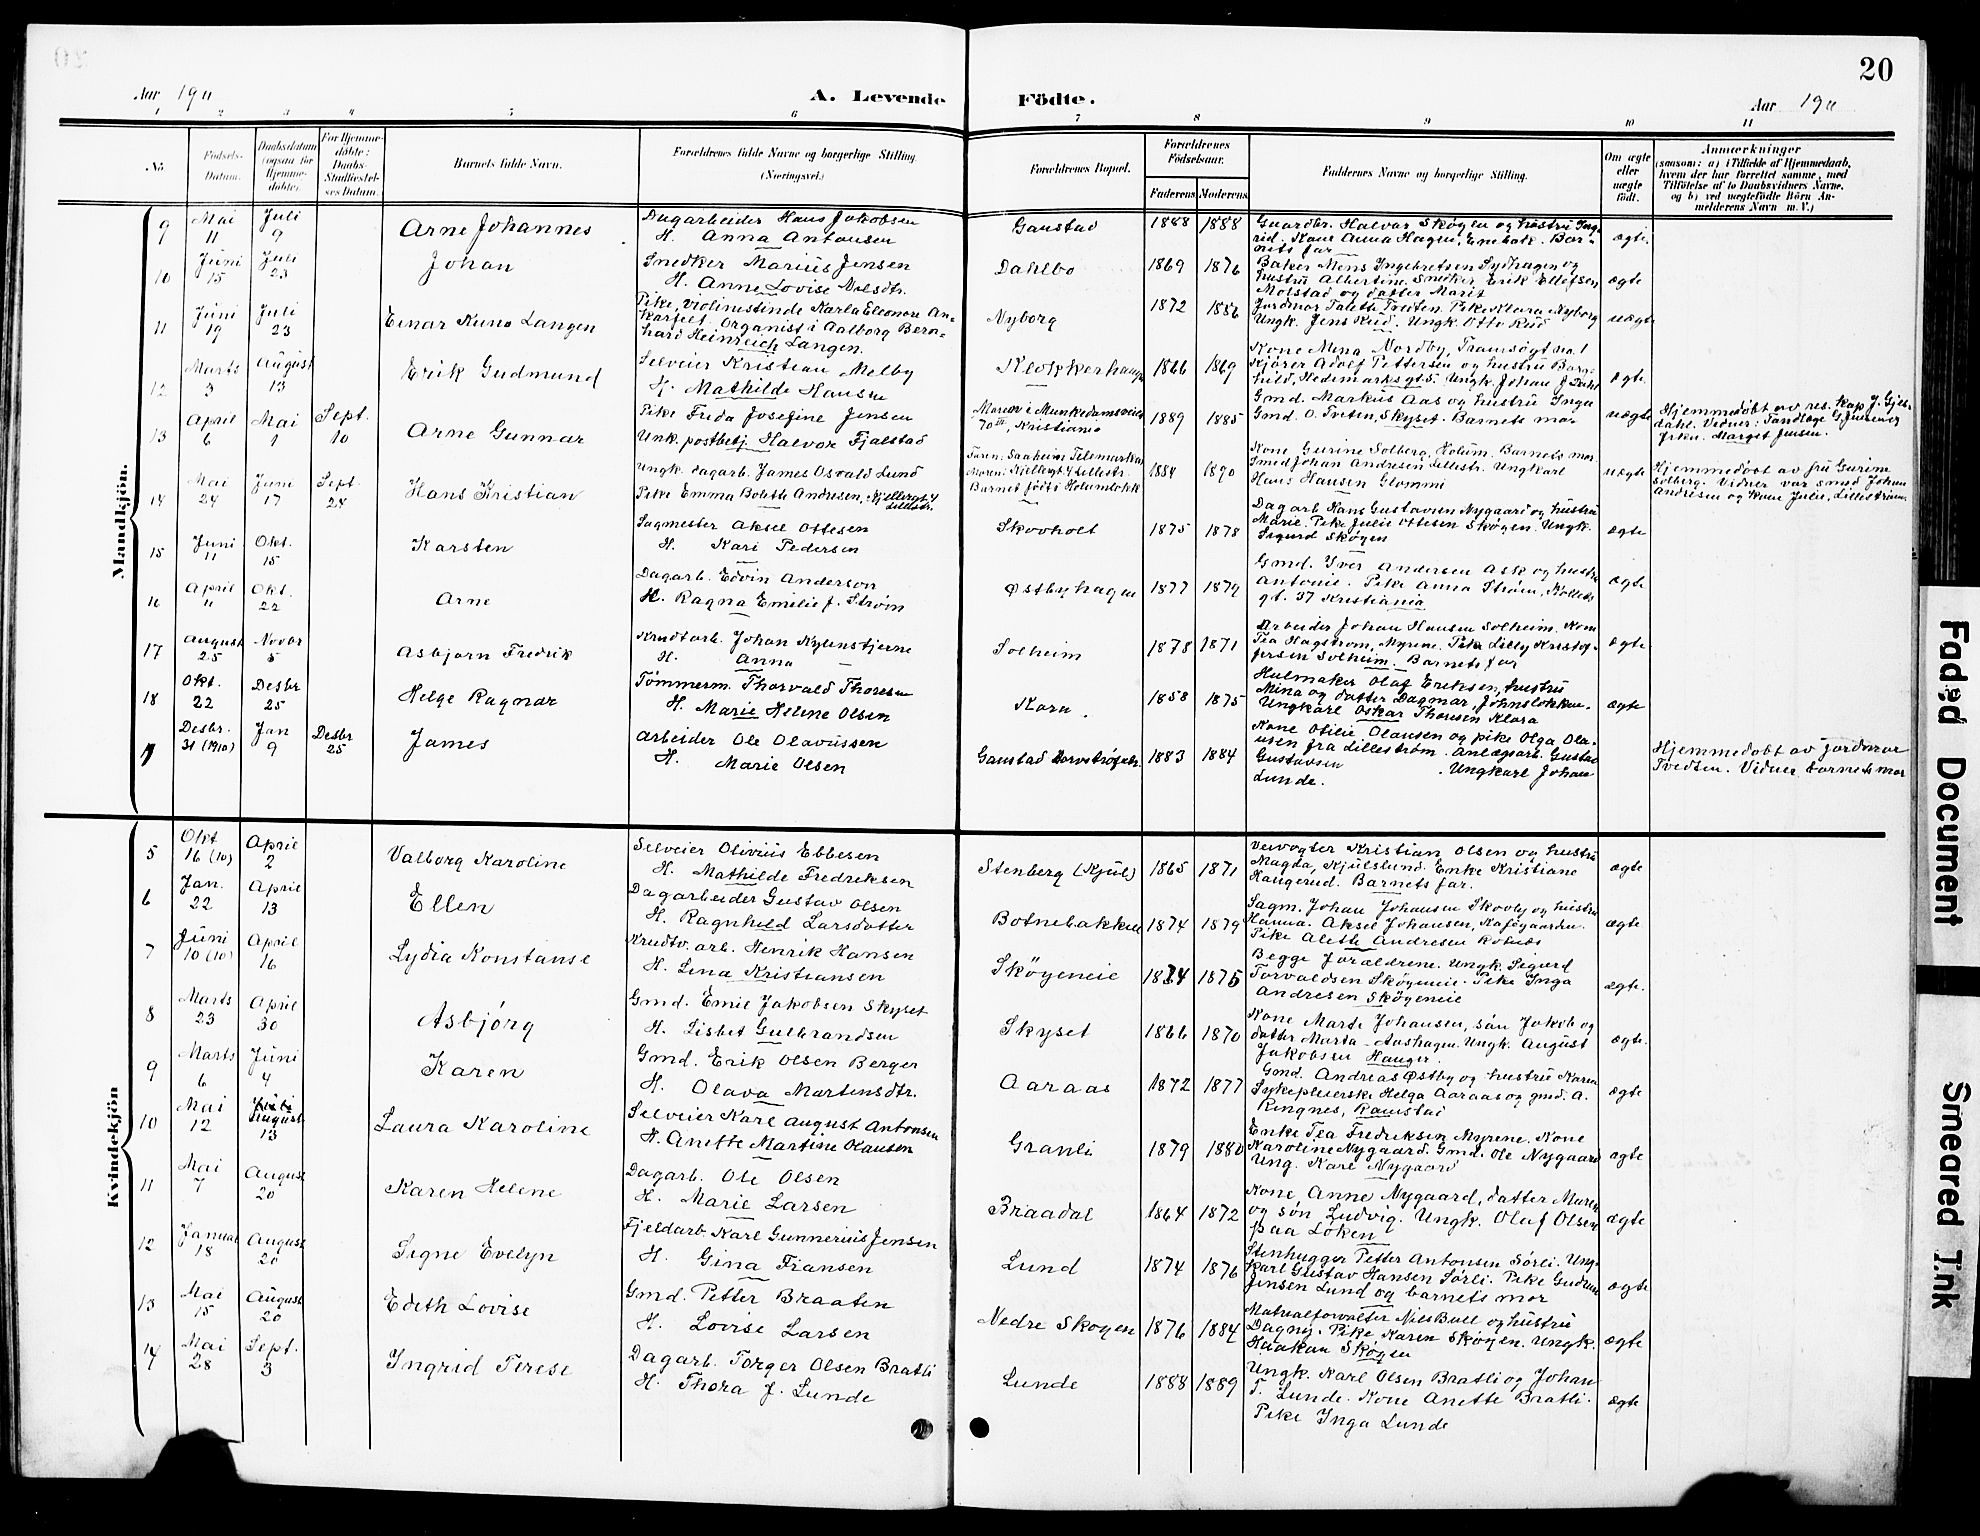 20
Aar 1911
A. Levende Födte.
Aar 1911
1 2 3 4 5 6 7 8 9 10 11
No
Födsels-
Datum.
Daabsdatum
(ogsaa for
Hjemme-
döbte).
For Hjemme-
döbte:
Daabs-
Stadfæstel-
ses Datum.
Barnets fulde Navn.
Forældrenes fulde Navne og borgerlige Stilling
(Næringsvei.)
Forældrenes Bopæl.
Forældrenes
Födselsaar.
Faderens
Moderens
Faddernes Navne og borgerlige Stilling.
Om ægte
eller
uægte
födt.
Anmærkninger
(saasom: a) i Tilfælde af Hjemmedaab,
hvem der har forrettet samme, med
Tilföielse af to Daabsvidners Navne,
og b) ved uægtefödte Börn An-
melderens Navn m. V.)
Mandkjön.
9 Mai 11 Juli 9 Arne Johannes
Dagarbeider Hans Jakobsen
H. Anna Antonsen
Gaustad 1888 1888
Gaardbr. Halvor Skøgen og hustru Ing-
rid. Kone Anna Hagen, Enebak. Bar-
nets far
ægte.
10 Juni 15 Juli 23 Johan
Snedker Marius Jensen
H. Anne Lovise Nilsdtr.
Dahlbo 1869 1876
Baker Mens Ingebretsen Sydhagen og
hustru Albertine. Snedker Erik Ellefsen
Molstad og datter Marit
ægte
11 Juni 19 Juli 23 Einar Kuno Langen
Pike, violinistinde Karla Eleonora An-
karfelt. Organist i Aalborg Bern-
hard Heinreich Langen.
Nyborg 1872 1886
Jordmor Talette Tvedten. Pike Klara Nyborg
Ungk. Jens Rud. Ungk. Otto Rud
uægte
12 Marts 3 August 13 Erik Gudmund
Selveier Kristian Melby
H. Mathilde Hansen
Klokkerhaugen 1866 1869
Kone Mina Nordby, Tramsøgt no. 1
Kjører Adolf Pettersen og hustru Borg-
hild, Hedemarksgt 5. Ungk. Johan J. Dahl
ægte.
13 April 6 Mai 1 Sept. 10 Arne Gunnar
Pike Frida Josefine Jensen
Unk. postbetj. Halvor Fjalstad
Moren i Munkedamsveien
70 III, Kristiania
1889 1885
Gmd. Markus Aas og hustru Inga
Gmd. O. Tveten, Skyset. Barnets mor
uægte
Hjemmedøbt av res. kap. J. Gjes-
dahl. Vidner: Tandlæge G. Juvener
Frkn. Marget Jensen.
14 Mai 24 Juni 17 Sept. 24 Hans Kristian
Ungk. dagarb. James Osvald Lund
Pike Emma Bolette Andresen, Kjellergt. 4
Lillestr.
Faren: Saaheim Telemarken
Moren: Kjellergt 4 Lillestr.
Barnet født i Holumlokk
1884 1890
Kone Gurine Solberg, Holum. Barnets mor
Smed Johan Andresen Lillestr. Ungkarl
Hans Hansen Glommi
uægte
Hjemmedøbt av fru Gurine
Solberg. Vidner var smed Johan
Andresen og kone Julie, Lillestrøm.
15 Juni 11 Okt. 15 Karsten
Sagmester Aksel Ottesen
H. Kari Pedersen
Skovholt 1875 1878
Dagarb Hans Gustavsen Nygaard og hustru
Marie. Pike Julie Ottesen Skøgen. Ungk.
Sigurd Skøgen
ægte
16 April 11 Okt. 22 Arne
Dagarb. Edvin Anderson
H. Ragna Emilie J. Strøm
Østbyhagen 1877 1879
Gmd. Iver Andersen Ask og hustru
Antonie. Pike Anna Strøm, Kolleds
gt. 37 Kristiania
ægte
17 August 25 Novbr 5 Asbjørn Fredrik
Krudtarb. Johan Nylenstjerne
H. Anna —
Solheim 1878 1871
Arbeider Johan Hansen Solheim. Kone
Tea Hagstrøm, Myrene. Pike Lilly Kristof-
fersen Solheim. Barnets far
ægte
18 Okt. 22 Desbr 25 Helge Ragnar
Tømmerm. Thorvald Thoresen
H. Marie Helene Olsen
Kora . 1858 1875
Hulmaker Olaf Eriksen, hustru
Mina og datter Dagmar, Johnsløkken.
Ungkarl Oskar Thoresen Klara
ægte
19 Desbr. 31 (1910) Jan 9 Desbr 25 James
Arbeider Ole Olavussen
H. Marie Olsen
Gaustad 1883 1884
Kone Otilie Olausen og pike Olga Ola-
usen fra Lillestrøm. Anlægsarb. Gustav
Gustavsen . Ungkarl Johan
Lunde.
Hjemmedøbt av jordmor
Tvedten. Vidner barnets mor
Kvindekjön
5 Okt 16 (10) April 2 Valborg Karoline
Selveier Olivius Ebbesen
H. Mathilde Fredriksen
Stenberg (Kjul) 1865 1871
Veivogter Kristian Olsen og hustru
Magda, Kjulslund. Enke Kristiane
Haugerud. Barnets far.
ægte
6 Jan. 22 April 13 Ellen
Dagarbeider Gustav Olsen
H. Ragnhild Larsdatter
Botnebakken 1874 1879
Sagm. Johan Johansen Skovly og hustru
Hanna. Aksel Johansen, Kafegaarden.
Pike Alette Andresen
ægte
7 Juni 10 (10) April 16 Lydia Konstanse
Krudtv. arb. Henrik Hansen
H. Lina Kristiansen
Skøyeneie 1874 1875
Begge forældrene. Ungk. Sigurd
Torvaldsen Skøyeneie. Pike Inga
Andresen Skøyeneie
ægte.
8 Marts 23 April 30 Asbjørg
Gmd. Emil Jakobsen Skyset
H. Lisbet Gulbrandsen
Skyset 1866 1870
Kone Marte Johansen, søn Jakob og
datter Marta - Aashagen. Ungk. August
Jakobsen Hauger.
ægte.
9 Marts 6 Juni 4 Karen
Gmd. Erik Olsen Berger
H. Olava Martensdtr.
Aaraas 1872 1877
Gmd. Andreas Østby og hustru Karen
Sykepleierske Helga Aaraas og gmd. A.
Ringnes, Ramstad
ægte
10 Mai 12 August 13 Laura Karoline
Selveier Karl August Antonsen
H. Anette Martine Olausen
Granli 1879 1880
Enke Tea Fredriksen Myrene. Kone
Karoline Nygaard. Gmd. Ole Nygaard
Ung. Karl Nygaard
ægte
11 Mai 7 August 20 Karen Helene
Dagarb. Ole Olsen
H. Marie Larsen
Braadal 1864 1872
Kone Anne Nygaard, datter Maren
og søn Ludvig. Ungk. Olaf Olsen
paa Løken
ægte
12 Januar 18 August 20 Signe Evelyn
Fjeldarb. Karl Gunnerius Jensen
H. Gina Fransen
Lund 1874 1876
Stenhugger Petter Antonsen Sørli. Ung-
karl Gustav Hansen Sørli. Pike Gudrun
Jensen Lund og barnets mor
ægte
13 Mai 15 August 20 Edith Lovise
Gmd. Petter Braaten
H. Lovise Larsen
Nedre Skogen 1876 1884
Matrialforvalter Nils Bull og hustru
Dagny. Pike Karen Skøyen. Ungk.
Haakon Skøyen
ægte
14 Mai 28 Sept. 3 Ingrid Terese
Dagarb. Torger Olsen Bratli
H. Thora J. Lunde
Lunde 1888 1889
Ungk. Karl Olsen Bratli og Johan
T. Lunde. Kone Anette Bratli.
Pike Inga Lunde
ægte
Faded Document
Smeared Ink